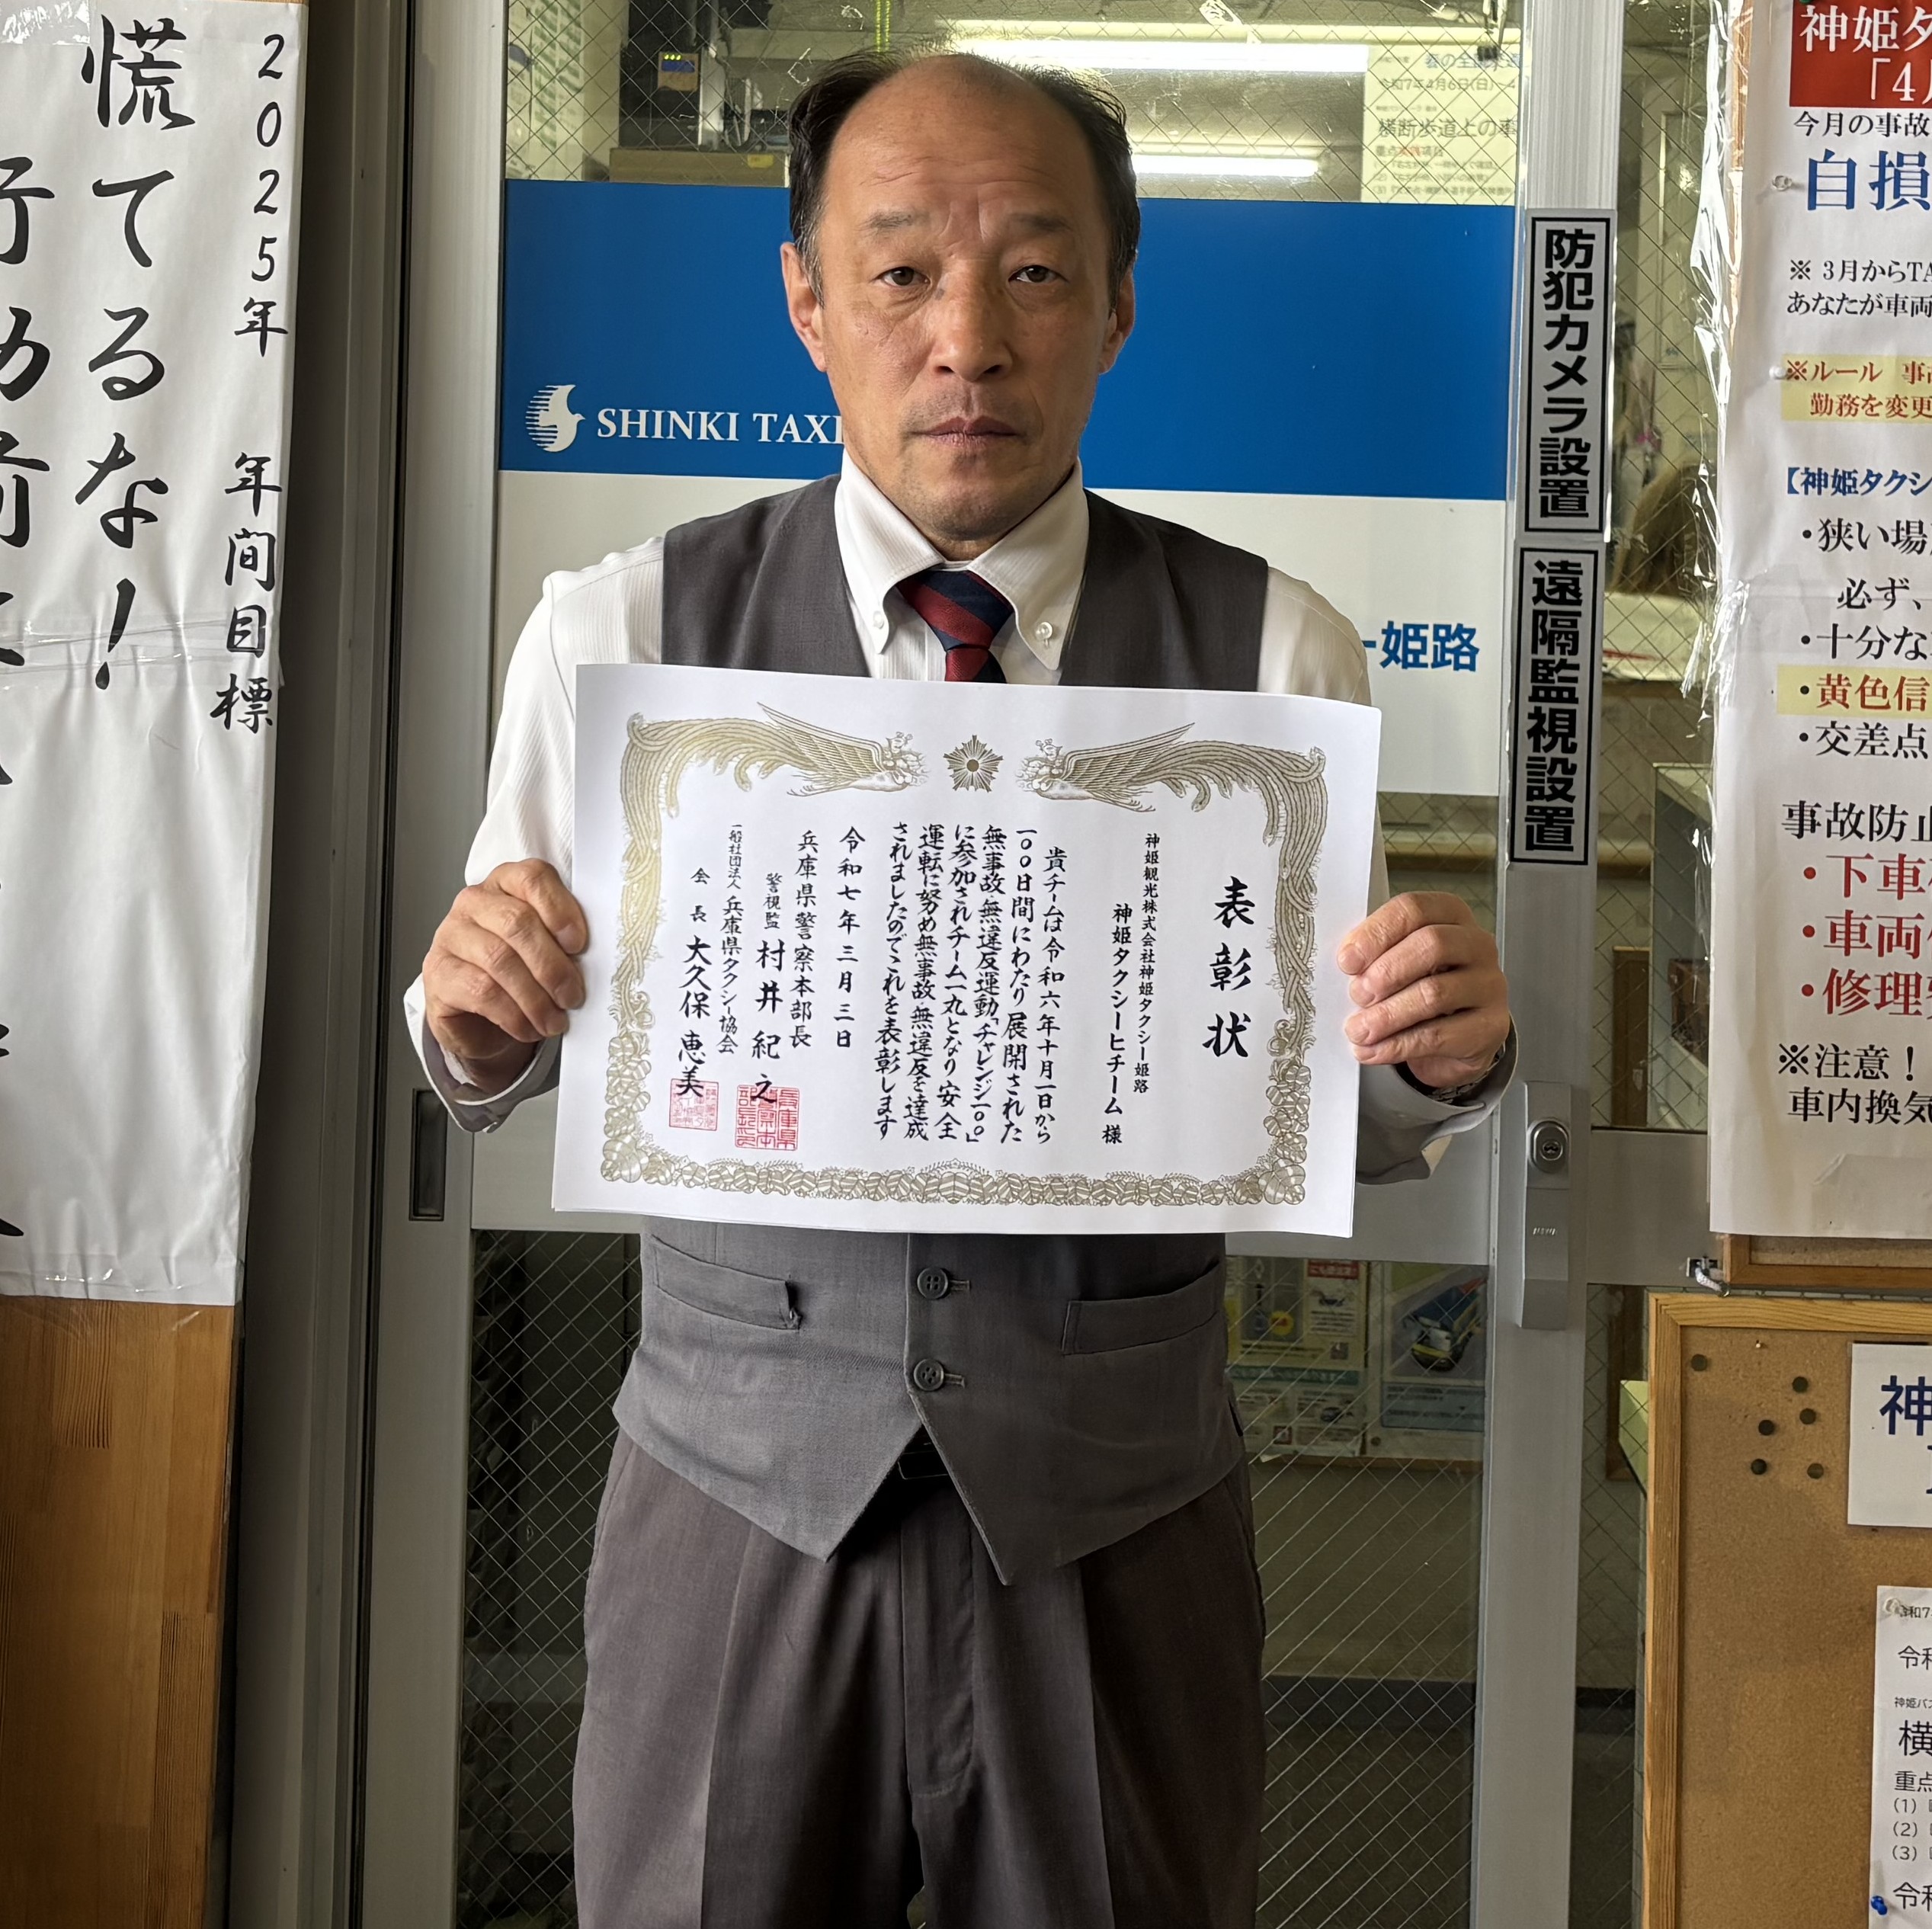 2025年 年間目標
慌てるな!
SHINKI TAXI
姫路
防犯カメラ設置
遠隔監視設置
横断歩道上の
表彰状
神姫観光株式会社神姫タクシー姫路
神姫タクシーヒチーム 様
貴チームは令和六年十月一日から
一〇〇日間にわたり展開された
無事故・無違反運動「チャレンジ一〇〇」
に参加されチーム一丸となり安全
運転に努め無事故・無違反を達成
されましたのでこれを表彰します
令和七年三月三日
兵庫県警察本部長
警視監 村井紀之
一般社団法人 兵庫県タクシー協会
会長 大久保恵美
神姫タ
「4月
今月の事故
自損
※ 3月からTA
あなたが車両
※ルール 事故
勤務を変更
【神姫タクシ
・狭い場
必ず、
・十分な
・黄色信
・交差点
事故防止
・下車
・車両
・修理
※注意!
車内換気
神
令和
神姫バス
横
重点
(1)
(2)
(3)
令和